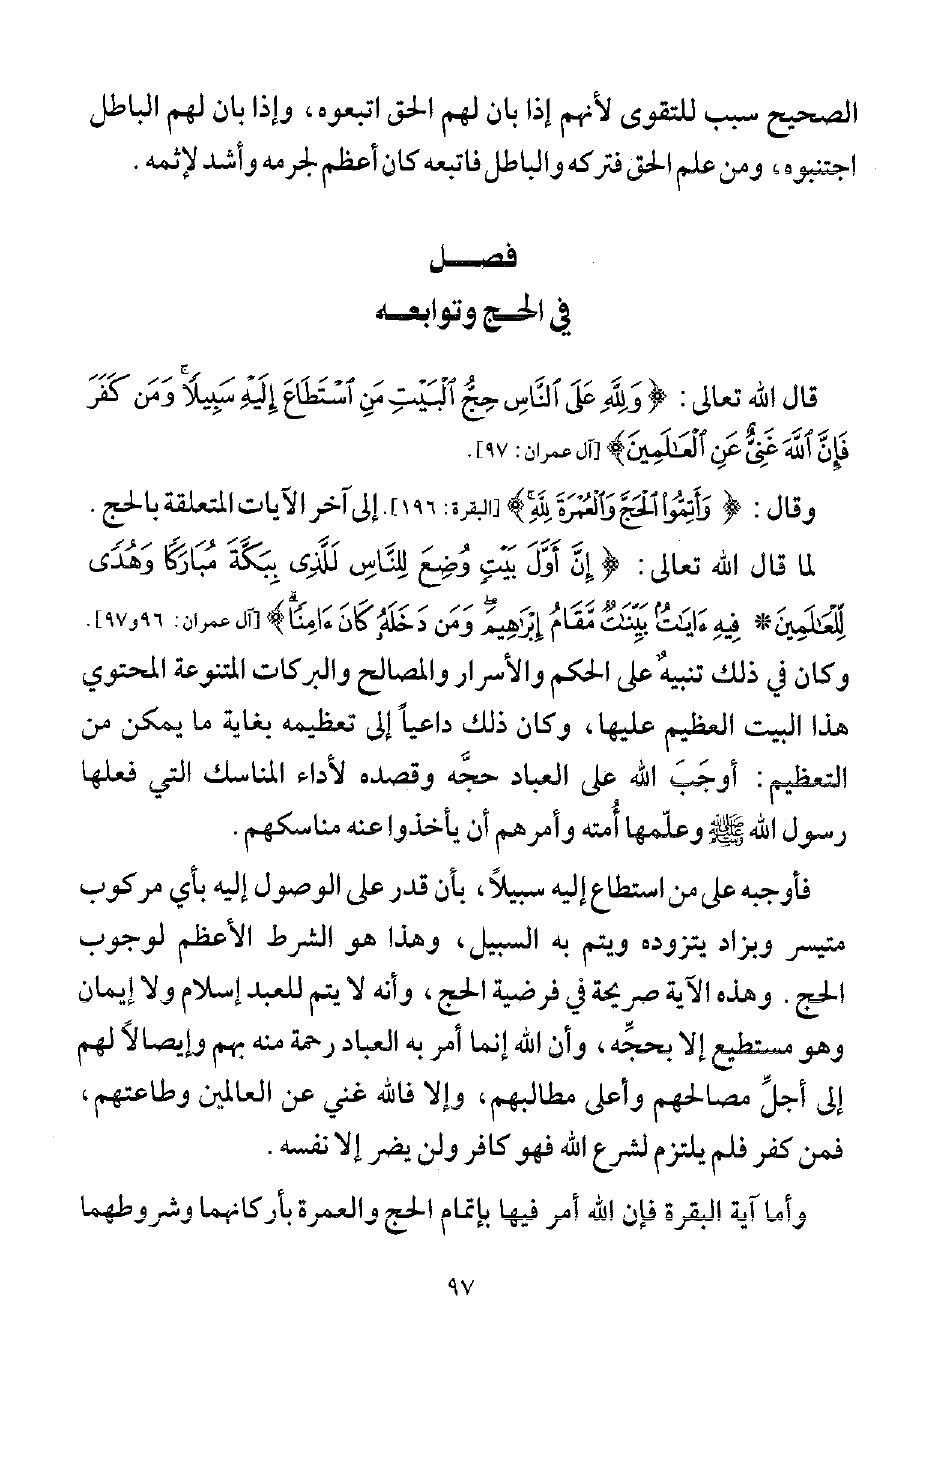 الصحيح سبب للتقوى لأنهم إذا بان لهم الحق اتبعوه، وإذا بان لهم الباطل
اجتنبوه، ومن علم الحق فتركه والباطل فاتبعه كان أعظم لجرمه وأشد لإثمه .
فصــــل
في الحــج وتوابعــه
قال الله تعالى : ﴿ وَلِلَّهِ عَلَى ٱلنَّاسِ حِجُّ ٱلْبَيْتِ مَنِ ٱسْتَطَاعَ إِلَيْهِ سَبِيلًا ۚ وَمَن كَفَرَ
فَإِنَّ ٱللَّهَ غَنِىٌّ عَنِ ٱلْعَـٰلَمِينَ﴾ [آل عمران : ٩٧].
وقال : ﴿ وَأَتِمُّوا۟ ٱلْحَجَّ وَٱلْعُمْرَةَ لِلَّهِ ۚ﴾ [البقرة : ١٩٦]. إلى آخر الآيات المتعلقة بالحج .
لما قال الله تعالى : ﴿ إِنَّ أَوَّلَ بَيْتٍ وُضِعَ لِلنَّاسِ لَلَّذِى بِبَكَّةَ مُبَارَكًا وَهُدًى
لِّلْعَـٰلَمِينَ * فِيهِ ءَايَـٰتٌۢ بَيِّنَـٰتٌ مَّقَامُ إِبْرَٰهِيمَ ۖ وَمَن دَخَلَهُۥ كَانَ ءَامِنًا ۗ﴾ [آل عمران : ٩٦و٩٧].
وكان في ذلك تنبيهٌ على الحكم والأسرار والمصالح والبركات المتنوعة المحتوي
هذا البيت العظيم عليها، وكان ذلك داعياً إلى تعظيمه بغاية ما يمكن من
التعظيم : أوجَبَ الله على العباد حجَّه وقصده لأداء المناسك التي فعلها
رسول الله ﷺ وعلّمها أُمته وأمرهم أن يأخذوا عنه مناسكهم .
فأوجبه على من استطاع إليه سبيلاً، بأن قدر على الوصول إليه بأي مركوب
متيسر وبزاد يتزوده ويتم به السبيل، وهذا هو الشرط الأعظم لوجوب
الحج . وهذه الآية صريحة في فرضية الحج، وأنه لا يتم للعبد إسلام ولا إيمان
وهو مستطيع إلا بحجِّه، وأن الله إنما أمر به العباد رحمة منه بهم وإيصالاً لهم
إلى أجلِّ مصالحهم وأعلى مطالبهم، وإلا فالله غني عن العالمين وطاعتهم،
فمن كفر فلم يلتزم لشرع الله فهو كافر ولن يضر إلا نفسه .
وأما آية البقرة فإن الله أمر فيها بإتمام الحج والعمرة بأركانهما وشروطهما
٩٧